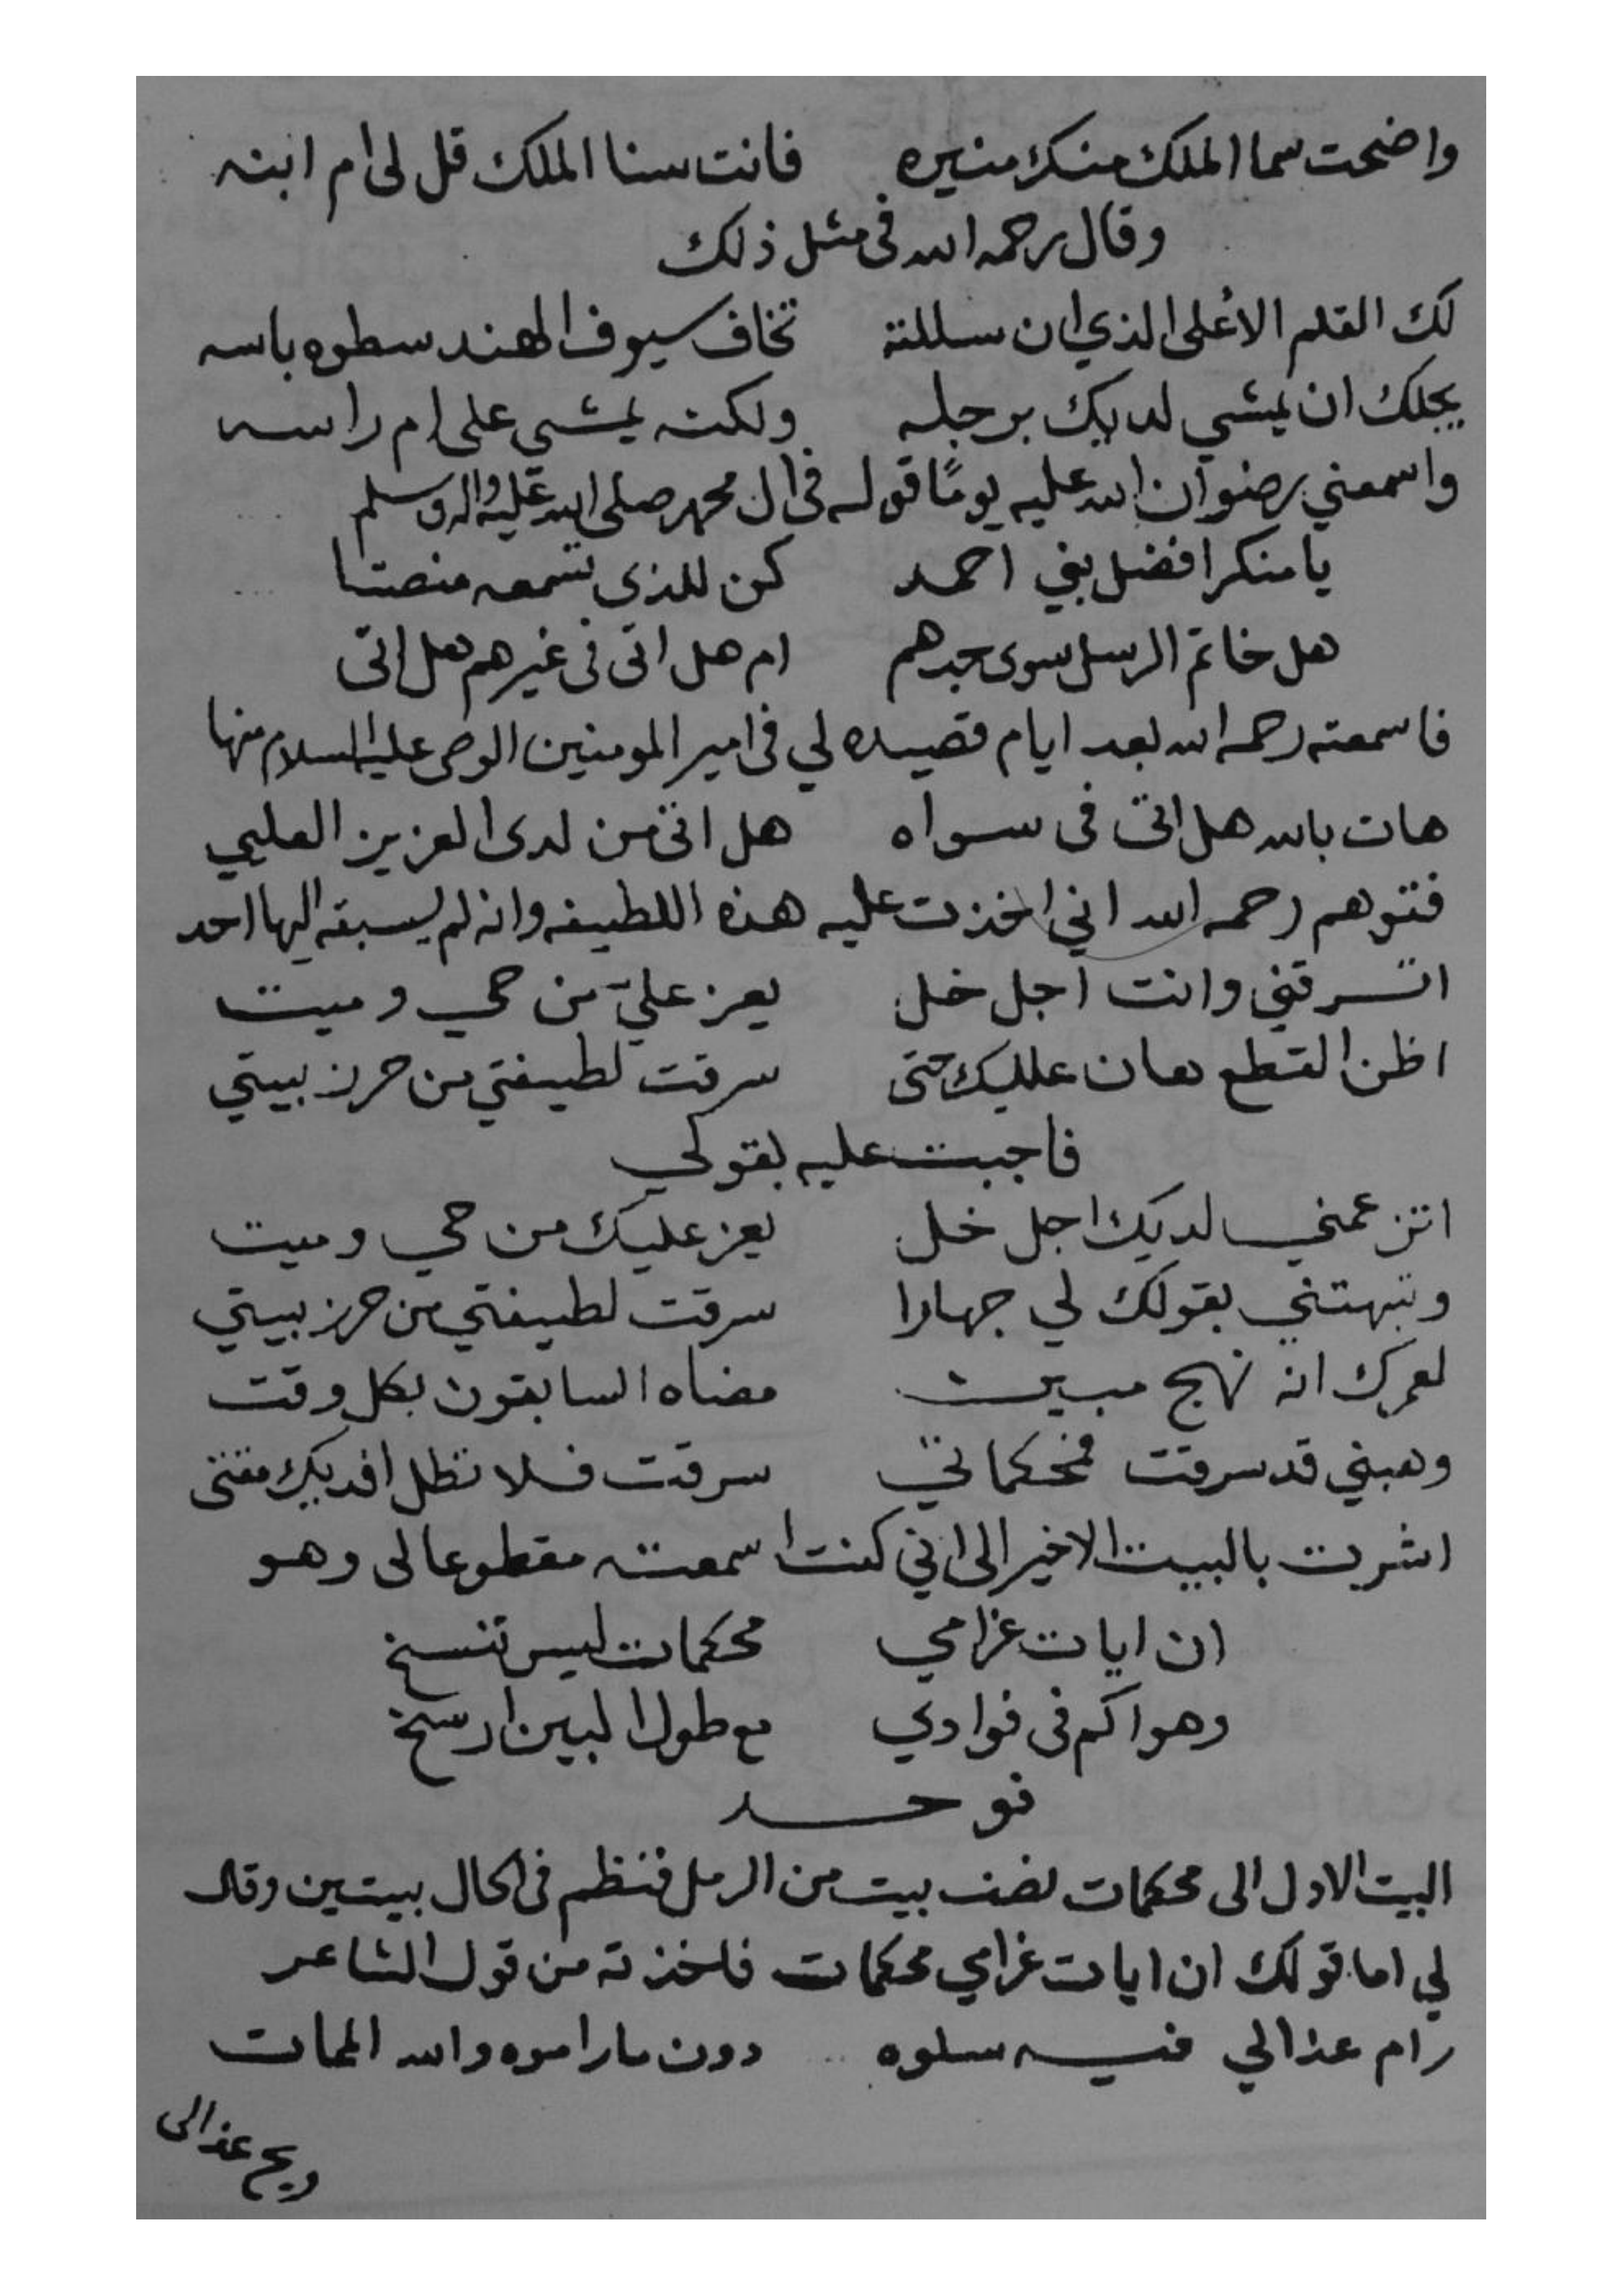 واضحت سما الملك منك منيره فانت سنا الملك قل لى ام ابنه
وقال رحمه الله فى مثل ذلك
لك القلم الاعلى الذي ان سللته تخاف سيوف الهند سطوه باسه
يجلك ان يمشي لديك برجله ولكنه يمشي على ام راسه
واسمعني رضوان الله عليه يومًا قوله فى ال محمد صلى الله عليه واله وسلم
يا منكرا فضل بني احمد كن للذى تسمعه منصتا
هل خاتم الرسل سوى جدهم ام هل اتى فى غيرهم هل اتى
فاسمعته رحمه الله بعد ايام قصيده لي فى امير المومنين الوصى عليه السلام منها
هات بالله هل اتى فى سواه هل اتى من لدى العزيز العليم
فتوهم رحمه الله اني اخذت عليه هذه اللطيفه وانه لم يسبقه اليها احد
اتسرقني وانت اجل خل يعز عليّ من حي وميت
اظن القطع هان عليك حتى سرقت لطيفتي من حرز بيتي
فاجبت عليه بقولي
اتزعمني لديك اجل خل يعز عليك من حي وميت
وتبهتني بقولك لي جهارا سرقت لطيفتي من حرز بيتي
لعمرك انه نهج مبين مضاه السابقون بكل وقت
وهبني قد سرقت فمحكماتي سرقت فلا تطل افديك مقتى
اشرت بالبيت الاخير الى اني كنت اسمعته مقطوعا لى وهو
ان ايات غرامي محكمات ليس تنسخ
وهواكم فى فوادي مع طول البين ارسخ
فوجد
البيت الاول الى محكمات نصف بيت من الرمل فنظم فى الحال بيتين وقال
لي اما قولك ان ايات غرامي محكمات فاخذته من قول الشاعر
رام عذالي فيه سلوه دون ما راموه والله الممات
ويح عذالى